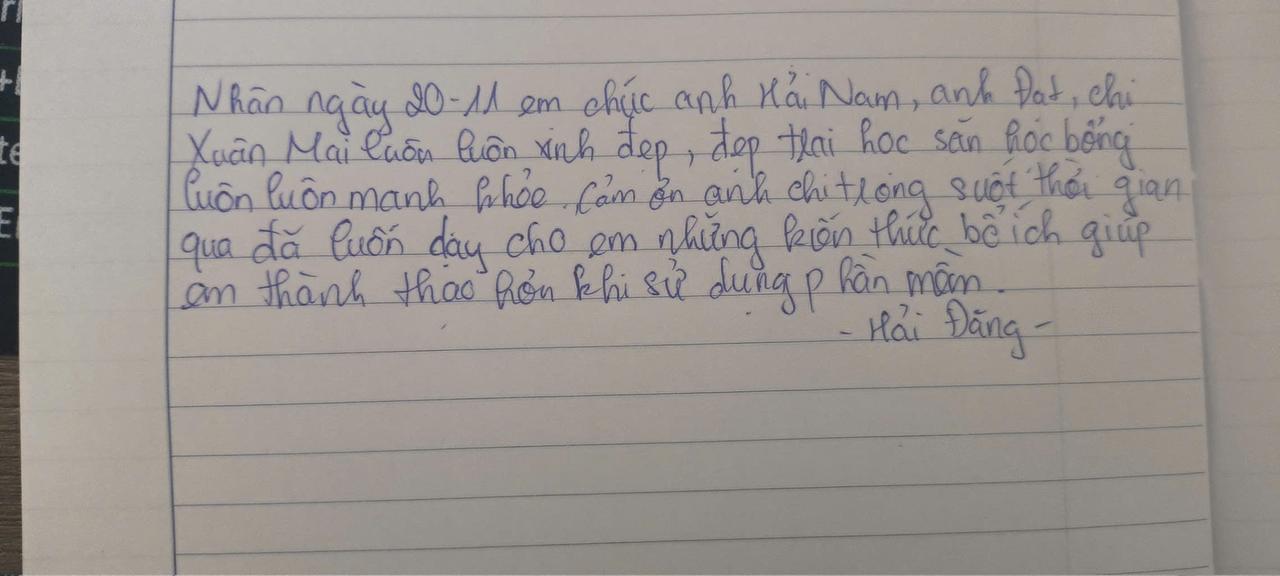 Nhân ngày 20-11 em chúc anh Hải Nam, anh Đạt, chị
Xuân Mai luôn luôn xinh đẹp, đẹp trai học săn học bổng
luôn luôn mạnh khỏe. Cảm ơn anh chị trong suốt thời gian
qua đã luôn dạy cho em những kiến thức bổ ích giúp
em thành thạo hơn khi sử dụng phần mềm.
- Hải Đăng -